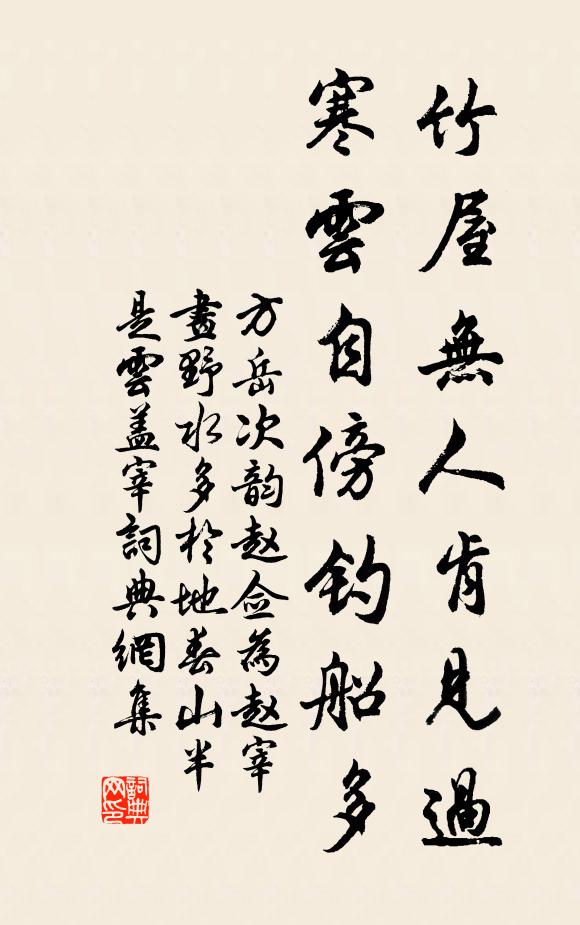 竹屋無人肯見過
寒雲自傍釣船多
方岳次韵赵佥為赵宰
畫野水多於地春山半
是雲盖宰詞典網集
詞典
网印